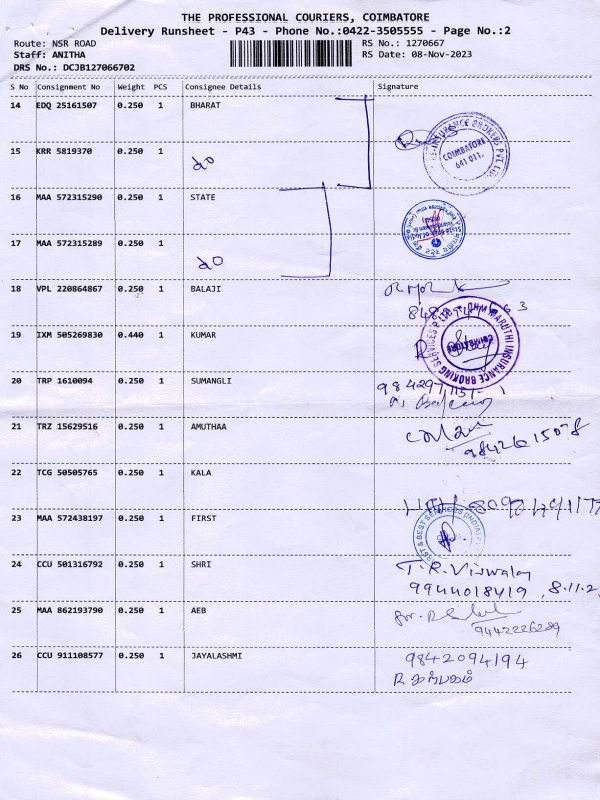 THE PROFESSIONAL COURIERS, COIMBATORE
Delivery Runsheet - P43 - Phone No.:0422-3505555 - Page No.:2
Route: NSR ROAD RS No.: 1270667
Staff: ANITHA RS Date: 08-Nov-2023
DRS No.: DCJB127066702
S No Consignment No Weight PCS Consignee Details Signature
14 EDQ 25161507 0.250 1 BHARAT
INSURANCE BROKERS PVT. LTD.
COIMBATORE
641 011.
15 KRR 5819370 0.250 1 do
16 MAA 572315290 0.250 1 STATE
State Bank of India
17 MAA 572315289 0.250 1 do
18 VPL 220864867 0.250 1 BALAJI
19 IXM 505269830 0.440 1 KUMAR
OHM MARUTHI INSURANCE BROKING SERVICES P LTD
20 TRP 1610094 0.250 1 SUMANGLI
21 TRZ 15629516 0.250 1 AMUTHAA
9842615078
22 TCG 50505765 0.250 1 KALA
23 MAA 572438197 0.250 1 FIRST
FIRST & BEST SERVICES (INDIA)
24 CCU 501316792 0.250 1 SHRI T.R.Viswalay
9944018419, 8.11.2
25 MAA 862193790 0.250 1 AEB
9442226289
26 CCU 911108577 0.250 1 JAYALASHMI 9842094194
R கற்பகம்